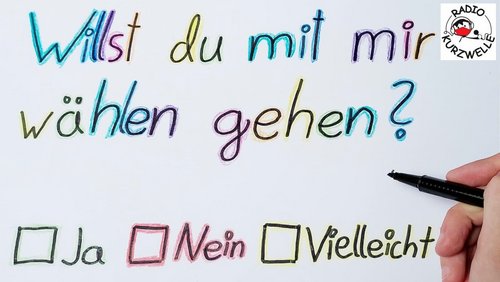 RADIO
KURZWELLE
Willst du mit mir
wählen gehen?
Ja Nein Vielleicht